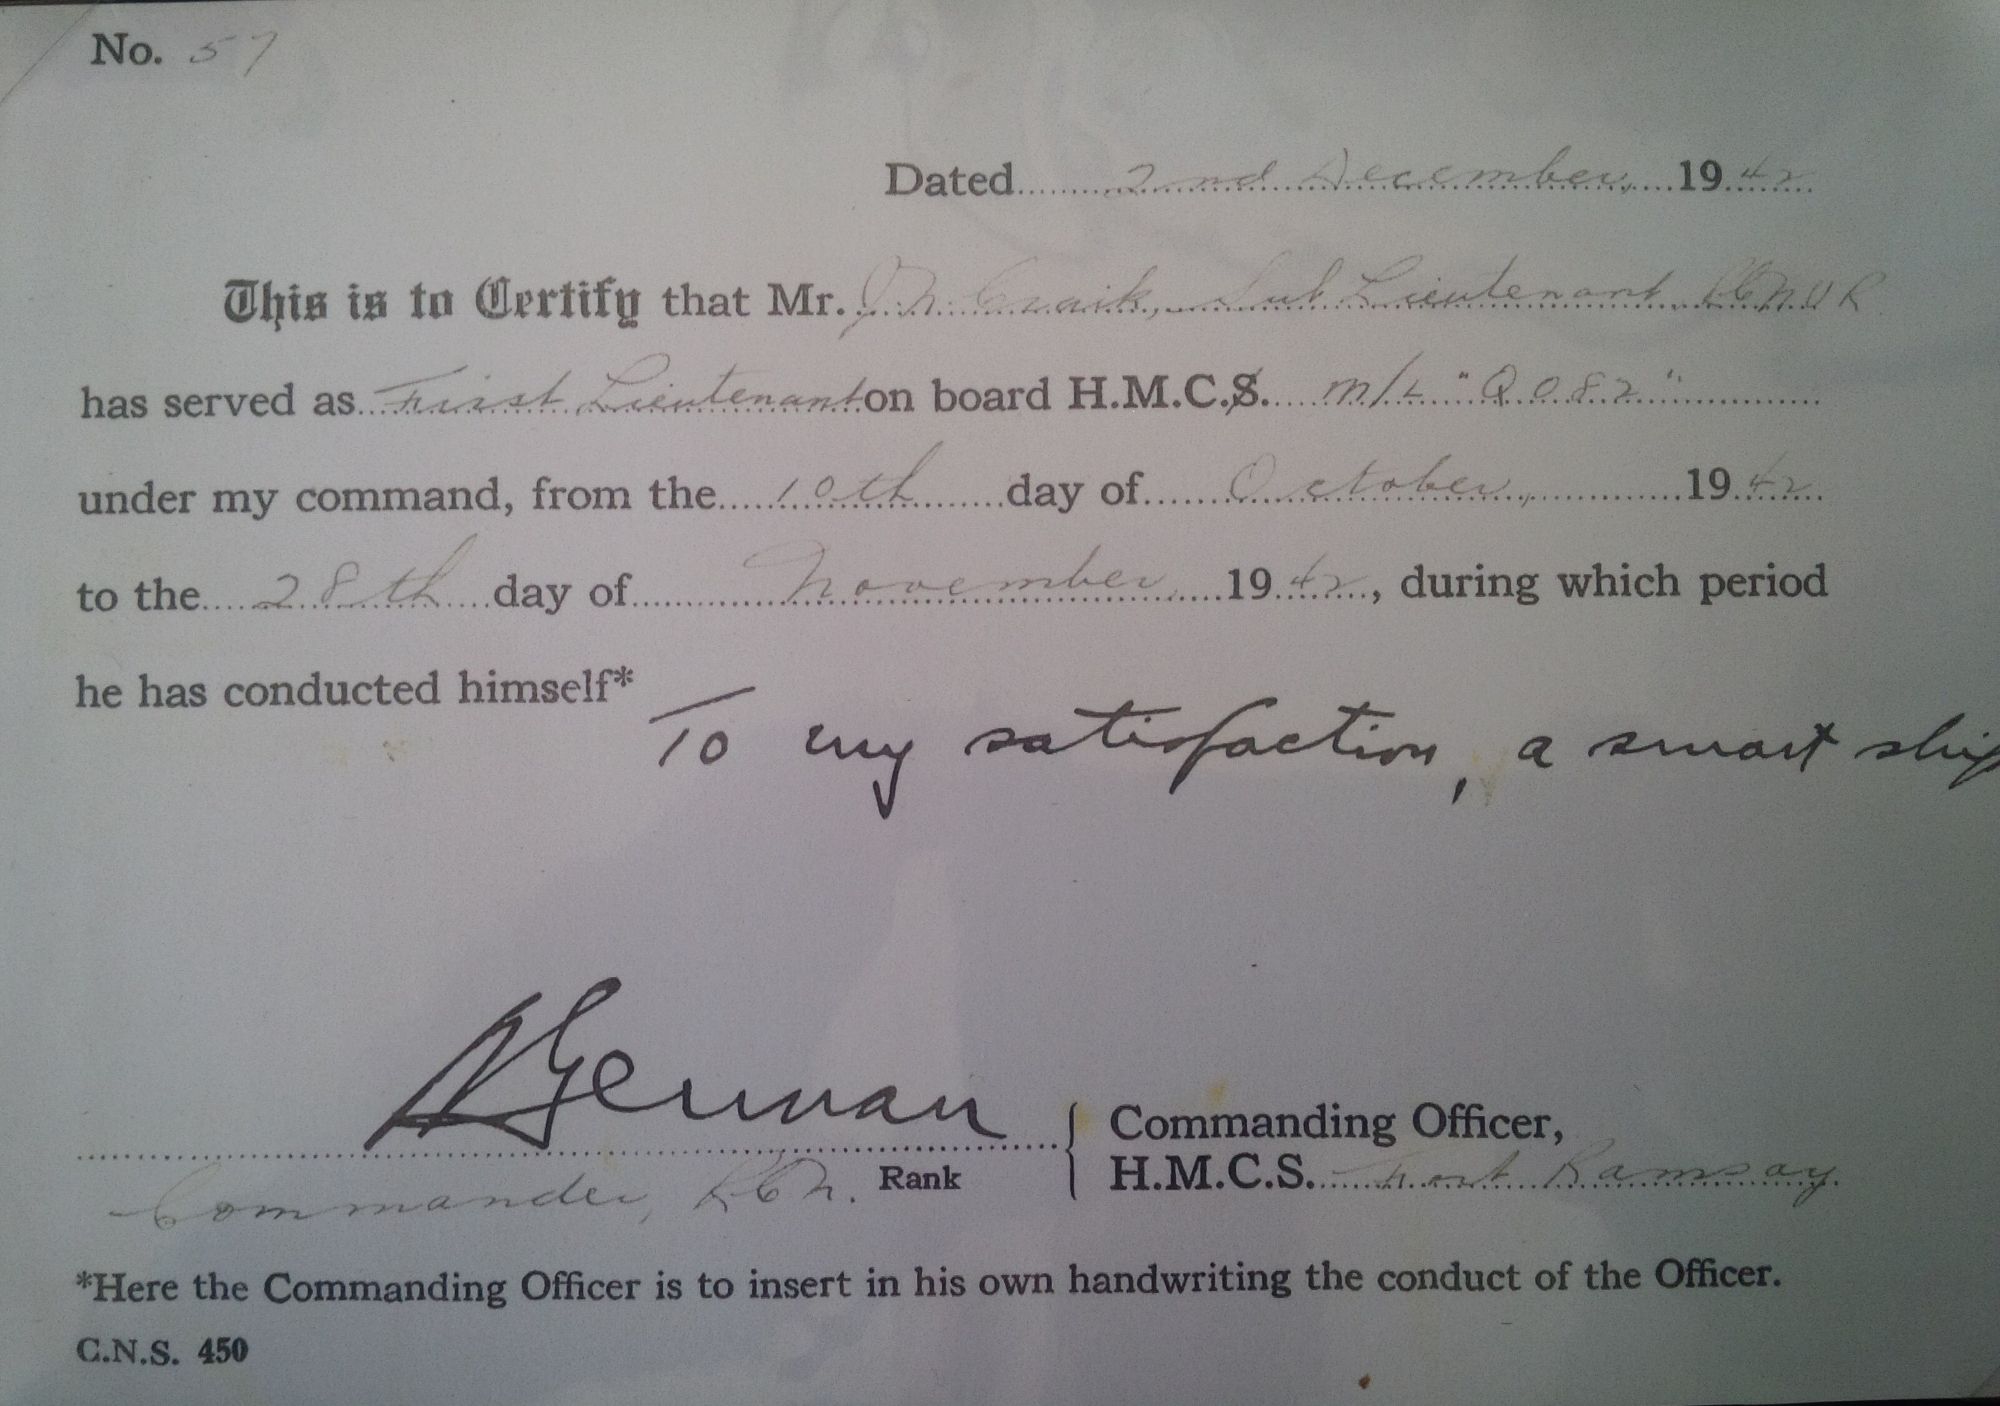 No. 57
Dated 2nd December, 1942
This is to Certify that Mr. J.N. Craik, Sub Lieutenant RCNVR
has served as First Lieutenant on board H.M.C.S. M/L "Q 082"
under my command, from the 10th day of October, 1942
to the 28th day of November, 1942, during which period
he has conducted himself*
To my satisfaction, a smart ship
German
Commander, RCN. Rank
Commanding Officer,
H.M.C.S. Fort Ramsay.
*Here the Commanding Officer is to insert in his own handwriting the conduct of the Officer.
C.N.S. 450